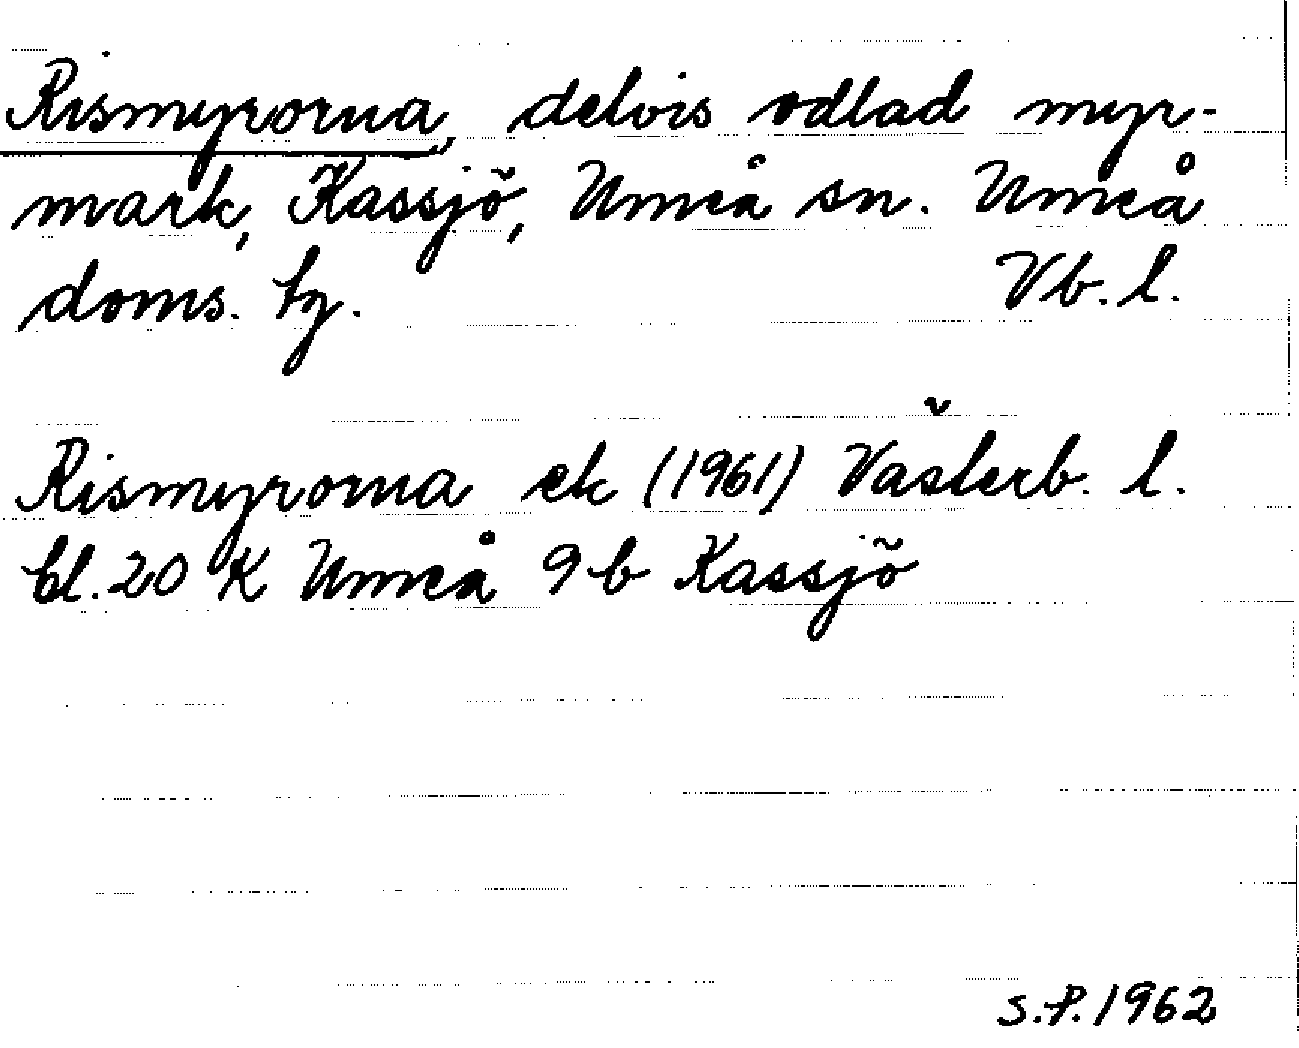 Rismyrorna, delvis odlad myr-
mark, Kassjö, Umeå sn. Umeå
doms. tg. Vb. l.
Rismyrorna ek (1961) Västerb. l.
bl. 20 K Umeå 9b Kassjö
S.P. 1962